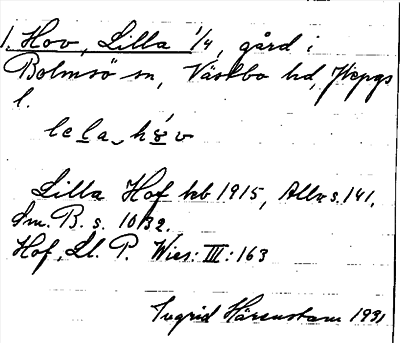 1. Hov, Lilla 1/4, gård i
Bolmsö sn, Västbo hd, Jkpgs
l.
Lilla Hof kb 1915, Allw s. 141.
Sm. B. s. 1032.
Hof, Ll. P. Wies: III: 163
Ingrid Härenstam 1931